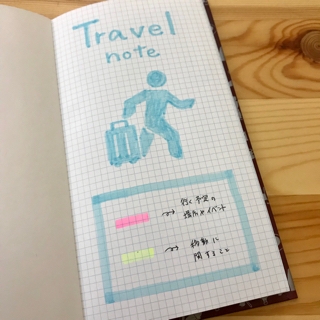 Travel
note
行く予定の
場所やイベント
移動に
関すること